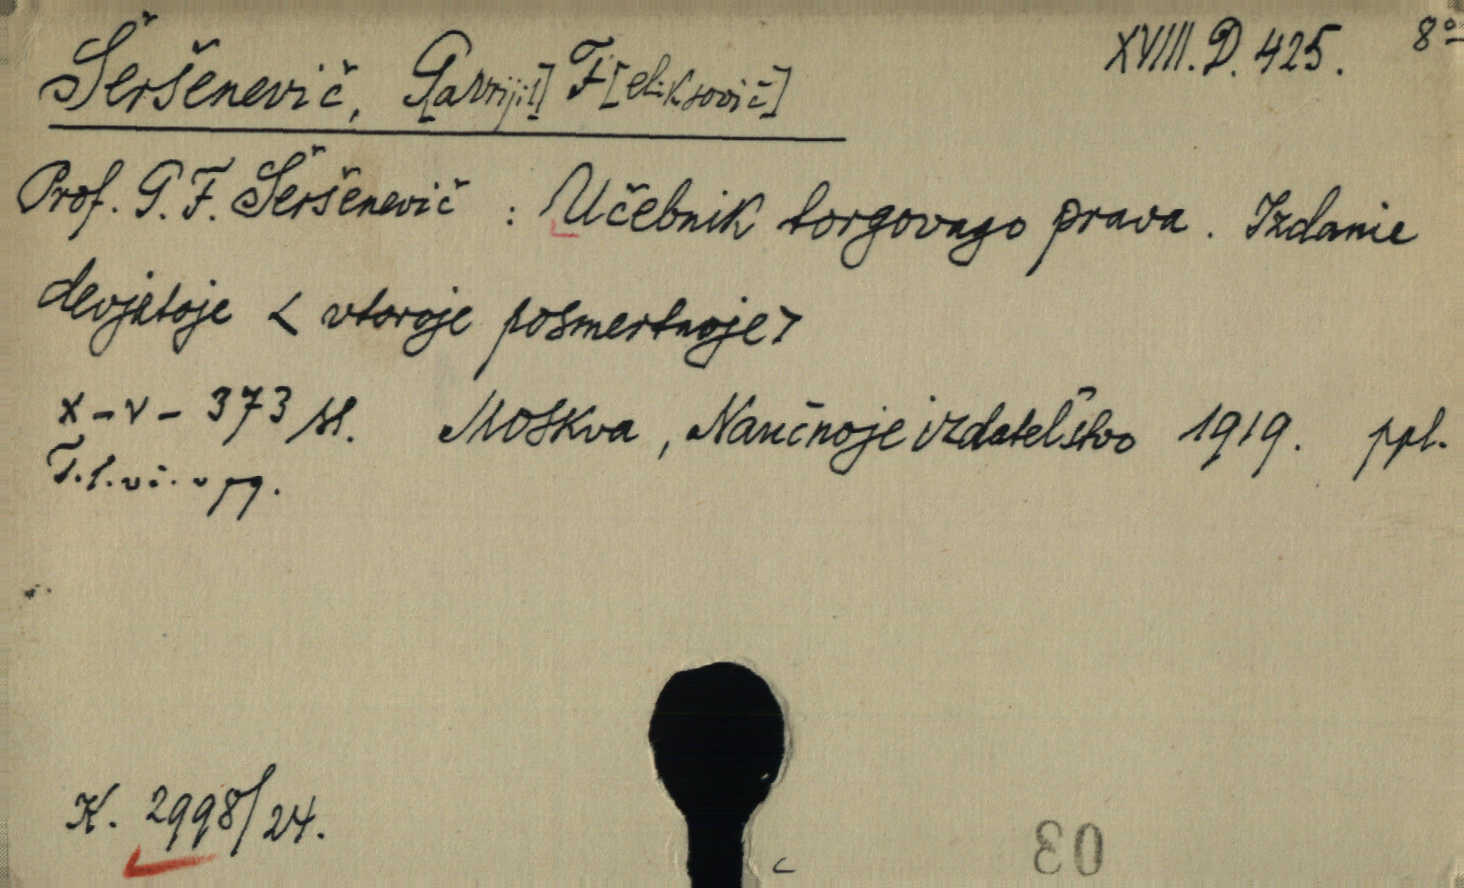 Šeršenević, G[avriijl] F[eliksovič] XVIII. D. 425. 8°
Prof. G. F. Šeršenevič : Učebnik torgovago prava. Izdanie
devjatoje < vtoroje posmertnoje>
X-V- 373 st. Moskva, Naučnoje izdatelštvo 1919. ppl.
K. 2998/24.
03